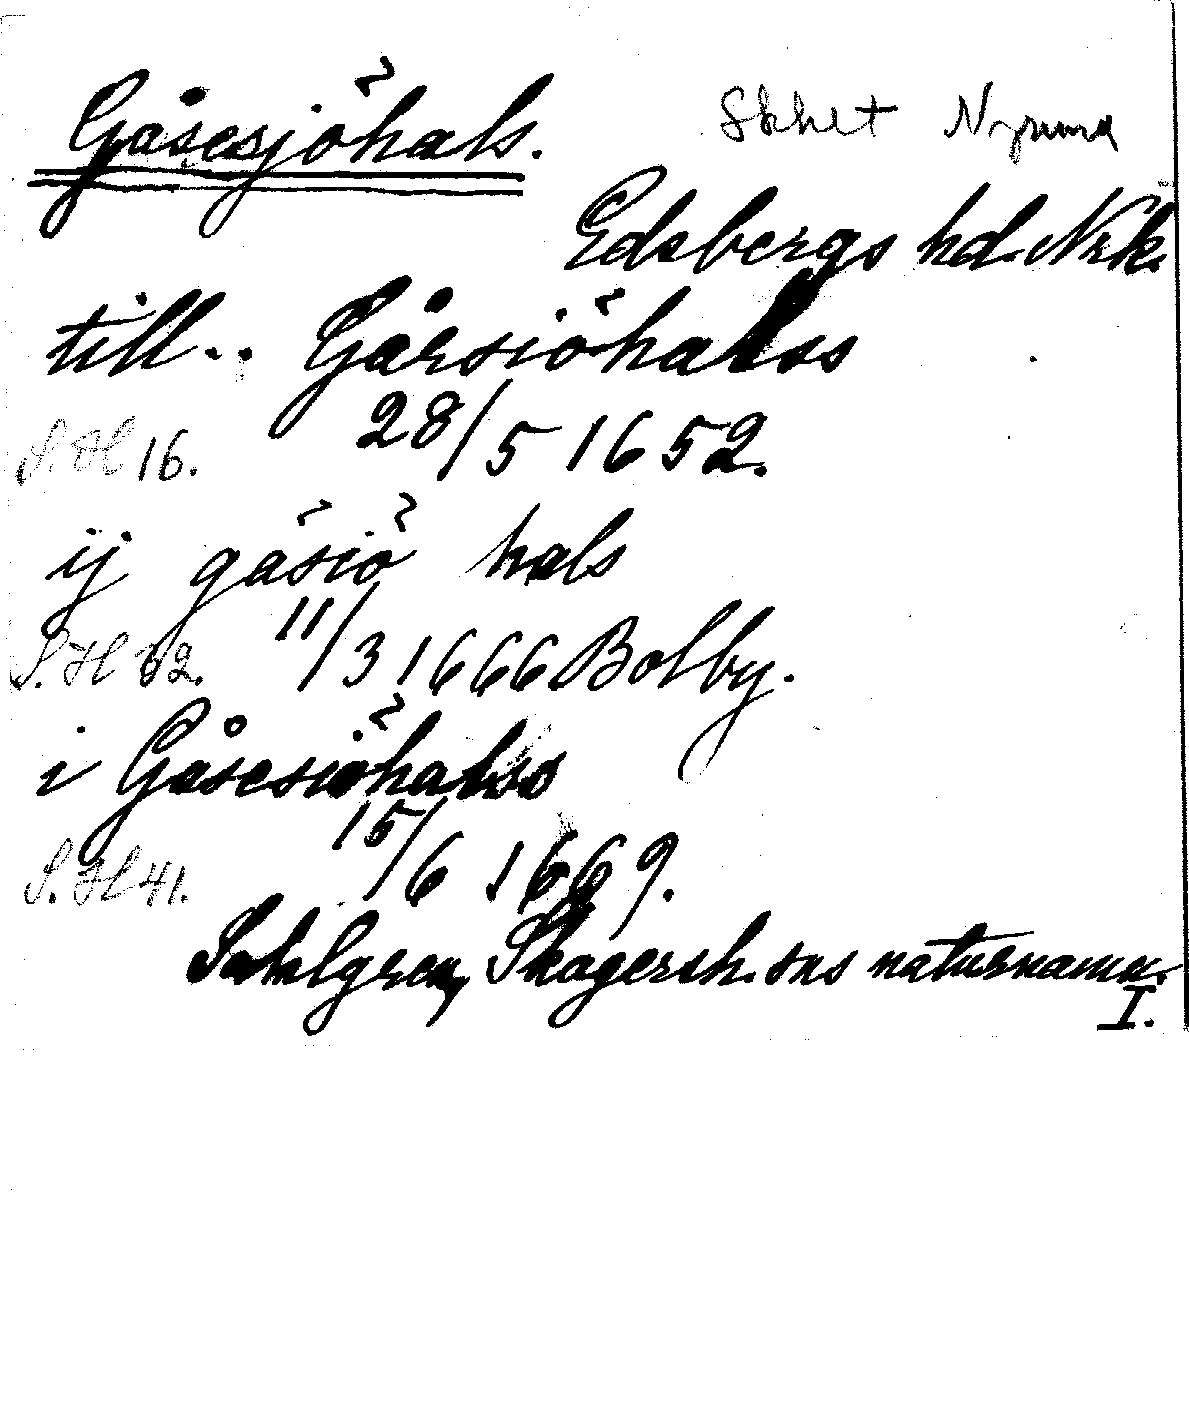 Gåsesjöhals.
Skhet Nysund
Edsbergs hd. Nrk.
till.. Gårsiöhalss
28/5 1652.
S. H 16.
ij gåsiö hals
11/3 1666 Bolby.
S. H 62.
i Gåsesiöhalss
15/6 1669.
S. H 41.
Sahlgren, Skagersh. sns naturnamn.
I.